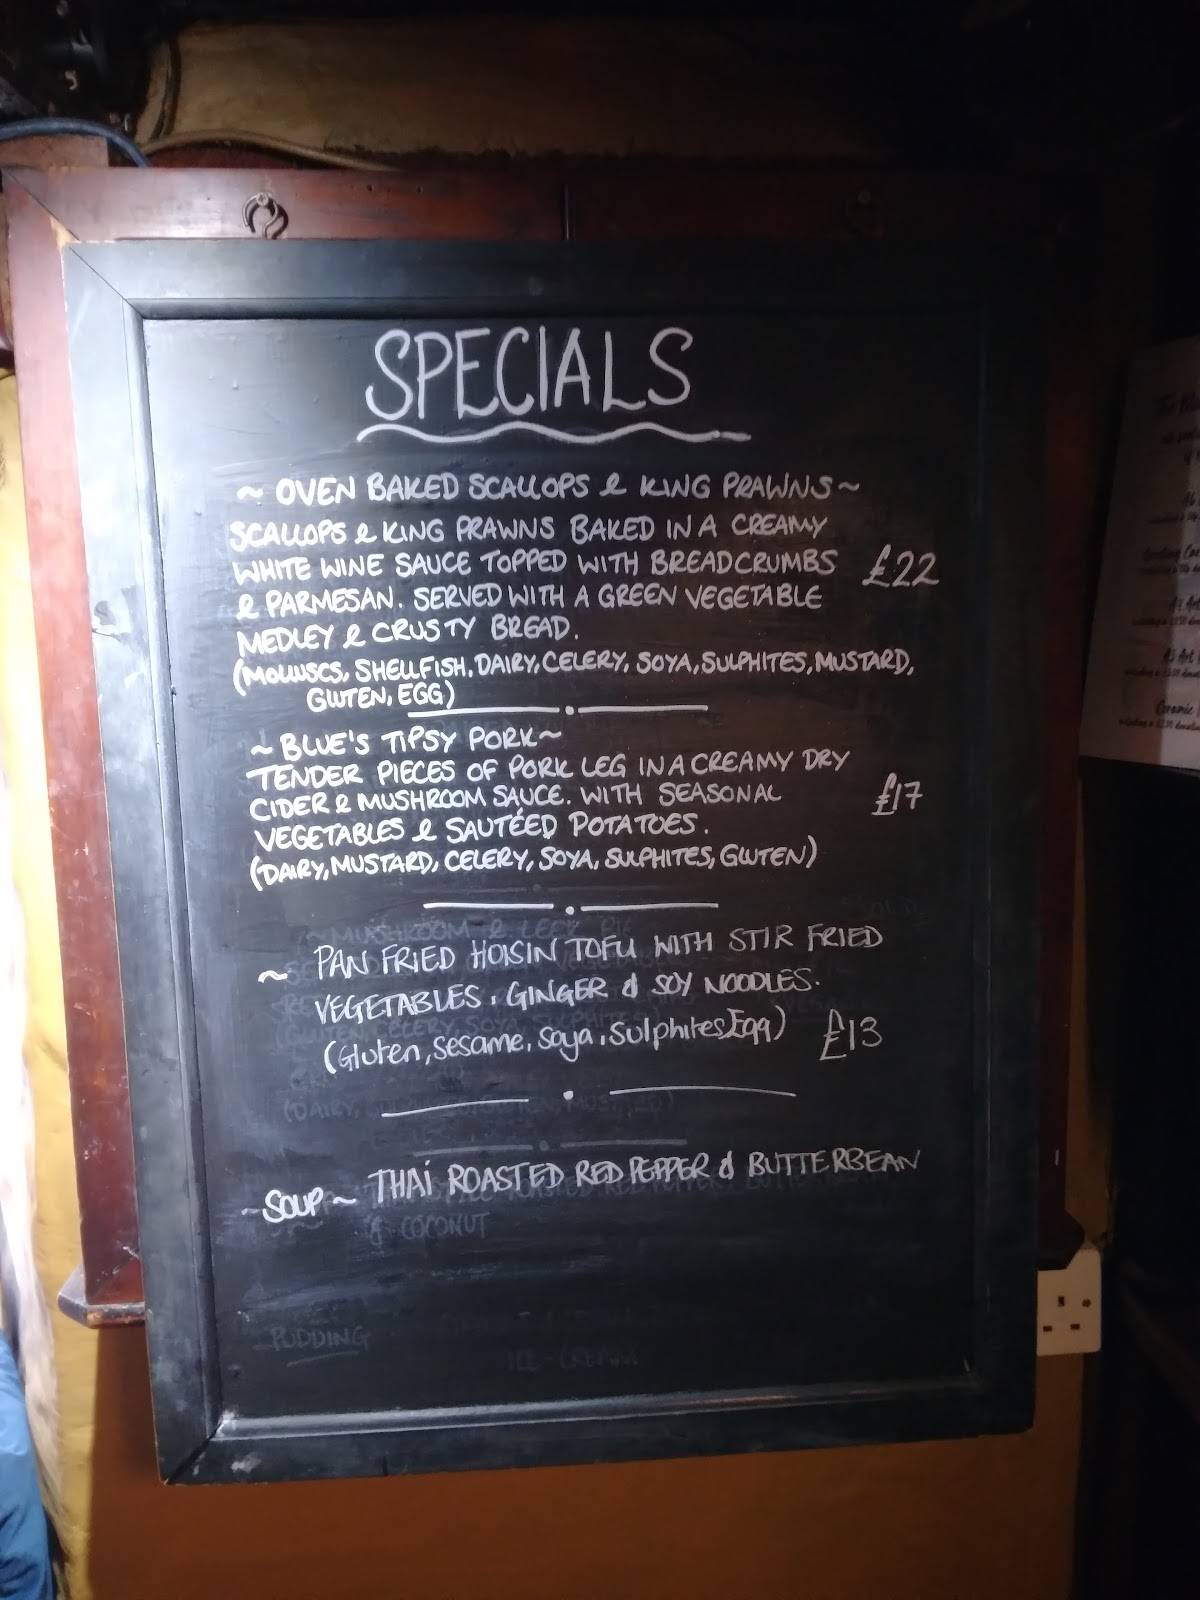 SPECIALS
~ OVEN BAKED SCALLOPS & KING PRAWNS ~
SCALLOPS & KING PRAWNS BAKED IN A CREAMY
WHITE WINE SAUCE TOPPED WITH BREADCRUMBS £22
& PARMESAN. SERVED WITH A GREEN VEGETABLE
MEDLEY & CRUSTY BREAD.
(MOLLUSCS, SHELLFISH, DAIRY, CELERY, SOYA, SULPHITES, MUSTARD,
GLUTEN, EGG)
~ BLUE'S TIPSY PORK ~
TENDER PIECES OF PORK LEG IN A CREAMY DRY
CIDER & MUSHROOM SAUCE. WITH SEASONAL £17
VEGETABLES & SAUTÉED POTATOES.
(DAIRY, MUSTARD, CELERY, SOYA, SULPHITES, GLUTEN)
~ PAN FRIED HOISIN TOFU WITH STIR FRIED
VEGETABLES, GINGER & SOY NOODLES.
(Gluten, sesame, soya, sulphites, Egg) £13
~ SOUP ~ THAI ROASTED RED PEPPER & BUTTERBEAN
& COCONUT
PUDDING